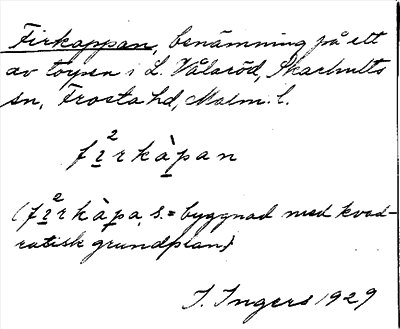 Firkappan, benämning på ett
av torpen i L. Vålaröd, Skarhults
sn, Frosta hd, Malm. l.
fi²rkàpan
(fi²rkàpa, s. = byggnad med kvad-
ratisk grundplan)
I. Ingers 1929